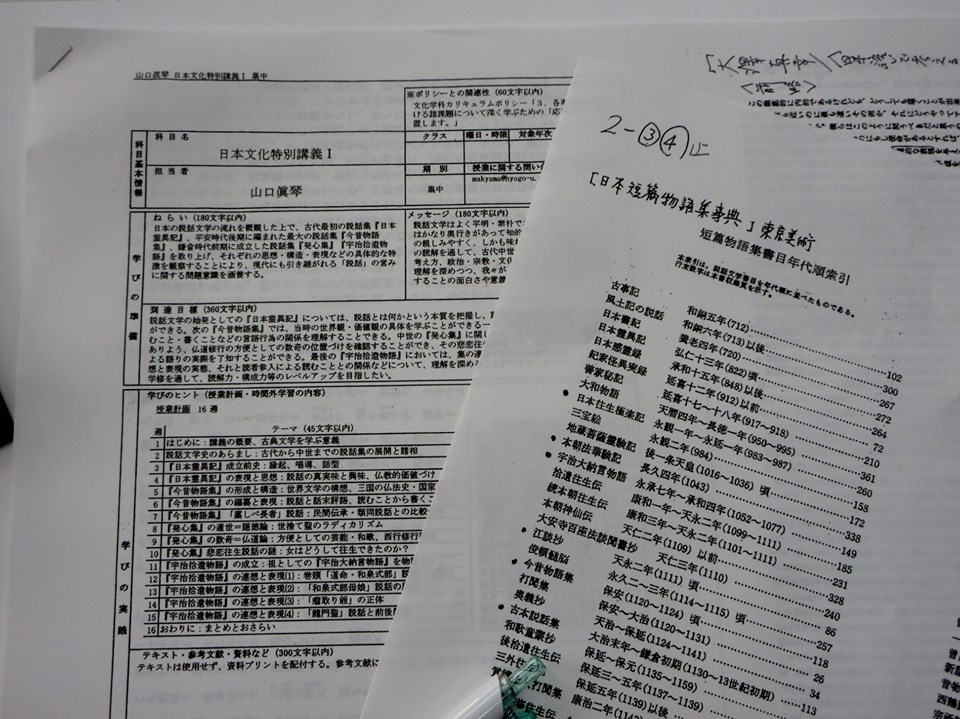 山口眞琴 日本文化特別講義Ⅰ 集中
※ポリシーとの関連性 (60文字以内)
文化学科カリキュラムポリシー「3、各
ける諸課題について深く学ぶための「応
置します。」
科目基本情報
科目名
日本文化特別講義Ⅰ
クラス
曜日・時限
対象年次
担当者
山口眞琴
期別
集中
授業に関する問い
makyama@hyogo-u.
学びの準備
ねらい (180文字以内)
日本の説話文学の流れを概観した上で、古代最初の説話集『日本
霊異記』、平安時代後期に編まれた最大の説話集『今昔物語
集』、鎌倉時代前期に成立した説話集『発心集』『宇治拾遺物
語』を取り上げ、それぞれの思想・構造・表現などの具体的な特
徴を観察することにより、現代にも引き継がれる「説話」の営み
に関する問題意識を涵養する。
メッセージ (180文字以内)
説話文学はよく平明・素朴で
はかなり奥行きがあって知的
の親しみやすく、しかも味わ
の読解を通して、古代中世
考え方、政治・宗教・文
理解を深めつつ、我々が
することの面白さや意義
到達目標 (360文字以内)
説話文学の始発としての『日本霊異記』については、説話とは何かという本質を把握し、
ができる。次の『今昔物語集』では、当時の世界観・価値観の具体を学ぶことができる
むこと・書くことなどの言語行為の関係を理解することができる。中世の『発心集』に関し
ありよう、仏道修行の方便としての数奇の位置づけを確認することができ、その悲恋往
よる語りの実際を了知することができる。最後の『宇治拾遺物語』においては、集の連
想と表現の実態、それと読者参入による読むこととの関係などについて、理解を深め
学修を通して、読解力・構成力等のレベルアップを目指したい。
学びの実践
学びのヒント (授業計画・時間外学習の内容)
授業計画 16 週
週 テーマ (45文字以内)
1 はじめに:講義の概要、古典文学を学ぶ意義
2 説話文学史のあらまし:古代から中世までの説話集の展開と諸相
3 『日本霊異記』成立前史:縁起、唱導、話型
4 『日本霊異記』の表現と思想:説話の真実味と興味、仏教的価値づけ
5 『今昔物語集』の形成と構造:世界文学の構想、三国の仏法史・国家
6 『今昔物語集』の編纂と表現:説話と話末評語、読むことから書くこ
7 『今昔物語集』「藁しべ長者」説話:民間伝承・類同説話との比較
8 『発心集』の遁世=隠徳論:世捨て聖のラディカリズム
9 『発心集』の数奇=仏道論:方便としての芸能・和歌、西行修行
10 『発心集』悲恋往生説話の謎:女はどうして往生できたのか?
11 『宇治拾遺物語』の成立:祖としての『宇治大納言物語』を物
12 『宇治拾遺物語』の連想と表現(1):巻頭「道命・和泉式部」説
13 『宇治拾遺物語』の連想と表現(2):「和泉式部母娘」説話の
14 『宇治拾遺物語』の連想と表現(3):「瘤取り爺」の正体
15 『宇治拾遺物語』の連想と表現(4):「龍門聖」説話と前後
16 おわりに:まとめとおさらい
テキスト・参考文献・資料など (300文字以内)
テキストは使用せず、資料プリントを配付する。参考文献に
2-③④
『日本短篇物語集事典』東京美術
短篇物語集書目年代順索引
本索引は、説話文学書目を年代順に並べたものである。
行末数字は本書収録頁を示す。
古事記 和銅五年(712) 102
風土記の説話 和銅六年(713)以後 300
日本書紀 養老四年(720) 267
日本霊異記 弘仁十三年(822)頃 272
日本感霊録 承和十五年(848)以後 264
紀家怪異実録 延喜十二年(912)以前 72
善家秘記 延喜十七~十八年(917~918) 210
大和物語 天暦四年~長徳一年(950~995) 361
日本往生極楽記 永観一年~永延一年(983~987) 260
三宝絵 永観二年(984) 158
地蔵菩薩霊験記 後一条天皇(1016~1036)頃 172
本朝法華験記 長久四年(1043) 338
宇治大納言物語 永承七年~承和四年(1052~1077) 149
拾遺往生伝 康和一年~天永二年(1099~1111) 185
続本朝往生伝 康和三年~天永二年(1101~1111) 231
本朝神仙伝 天仁二年(1109)以前 328
大安寺百座法談聞書抄 天仁三年(1110) 240
江談抄 天永二年(1111)頃 86
俊頼髄脳 永久二~三年(1114~1115)頃 257
今昔物語集 保安(1120~1124)頃 118
打聞集 保安~大治(1120~1131) 26
奥義抄 天治~保延(1124~1141) 34
古本説話集 大治末年~鎌倉初期(1130~13世紀初期) 113
和歌童蒙抄 保延~保元(1135~1159)
後拾遺往生伝 保延三~五年(1137~1139)
三外往 保延五年(1139)以後
打聞集 康治二年(1143)